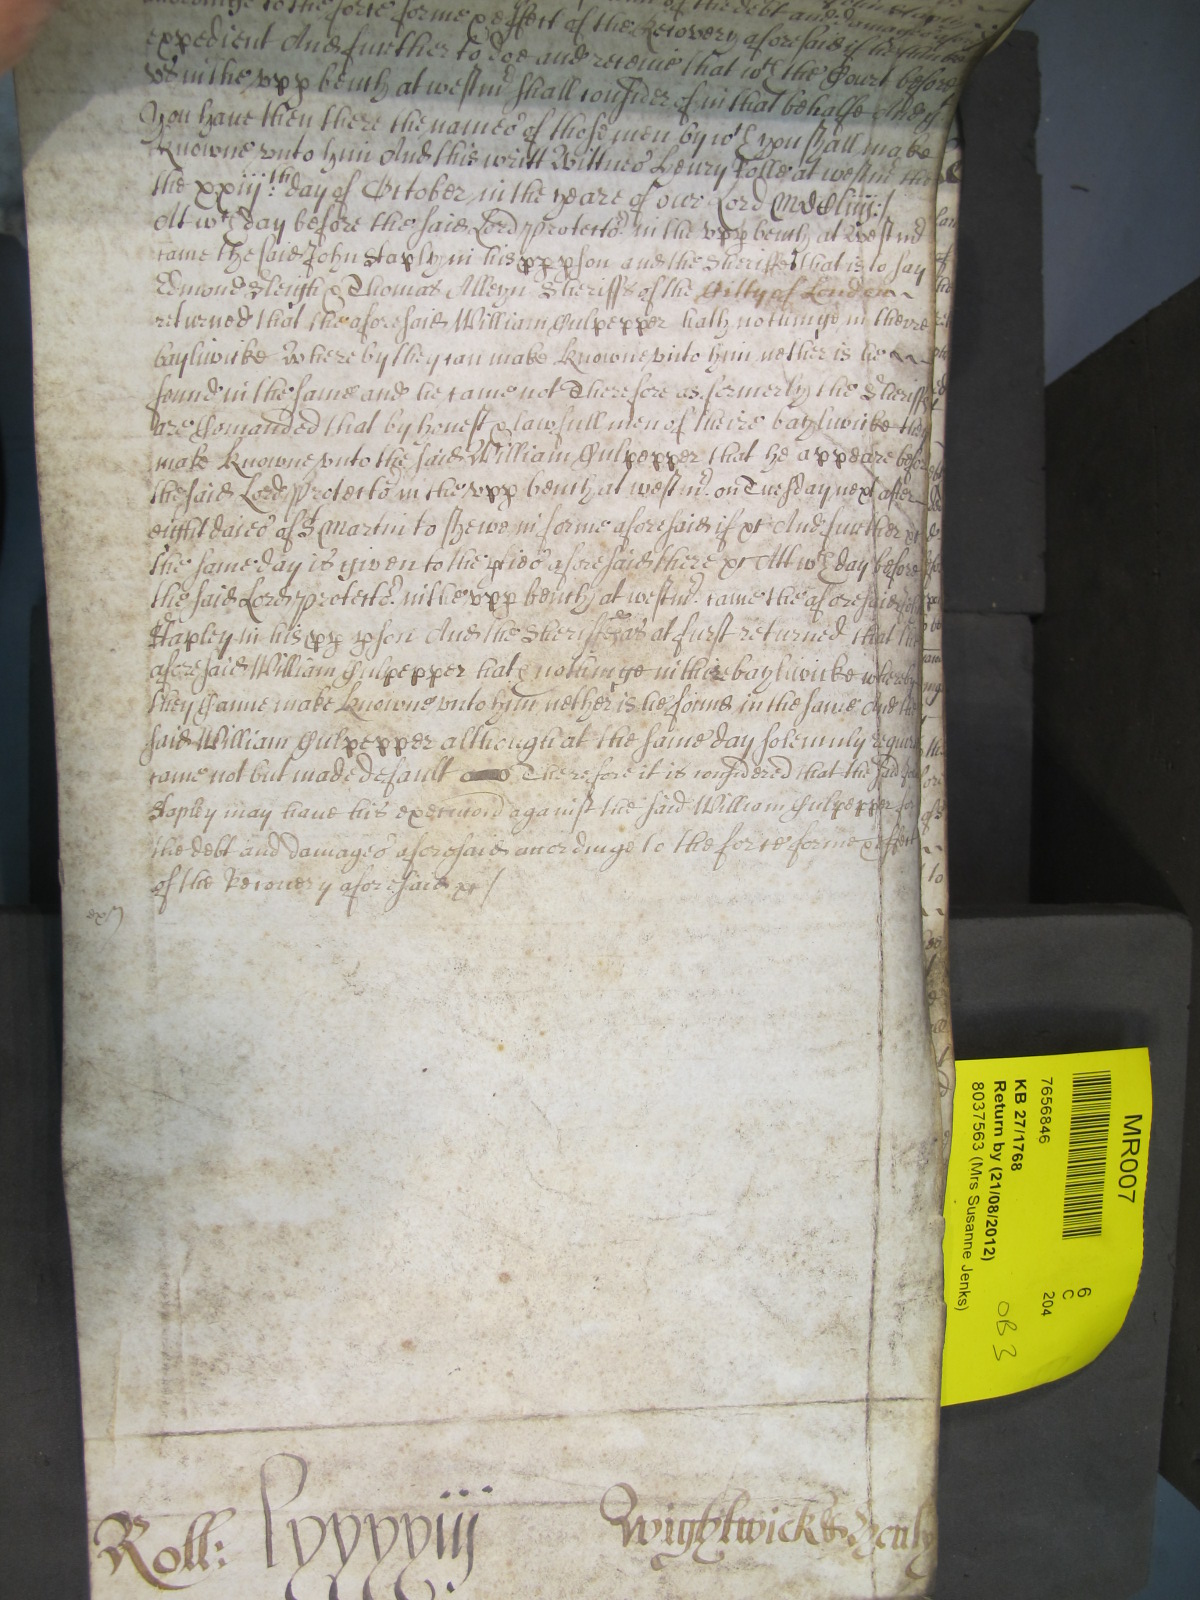 accordinge to the force forme & effect of the Recovery aforesaid if
expedient And further to doe and receive that wch the Court before
us in the upp bench at westmr shall consider of in that behalfe And if
you have then there the names of those men by wch you shall make
knowne unto him And this writt Wittnes Henry Rolle at westmr the
the xxiijth day of October in the yeare of our Lord MDCliiij /
Att wch day before the said Lord Protector in the upp bench at Westmr
came the said John Stapley in his pp pson and the Sheriffe that is to say
Edmond Sleigh & Thomas Alleyn Sheriffs of the Citty of London
returned that the aforesaid William Culpepper hath nothinge in theire
bayliwicke Whereby they can make knowne unto him nether is he
found in the same and he came not Therefore as formerly the Sheriffes
are Comanded that by honest & lawfull men of theire bayliwicke they
make knowne unto the said William Culpepper that he appeare before
the said Lord Protector in the upp bench at westmr on Tuesday next after
daies of St Martin to shewe in forme aforesaid if &c And further &c
the same day is given to the pties aforesaid there &c Att wch day before
the said Lord Protector in the upp bench at westmr came the aforesaid John
Stapley in his pp pson And the Sheriffes as at furst returned that the
aforesaid William Culpepper hath nothinge in theire bayliwicke whereby
they Canne make knowne unto him nether is he found in the same And the
said William Culpepper although at the same day solemnly required
came not but made default Therefore it is considered that the said John
Stapley may have his execucion against the said William Culpepper for
the debt and damages aforesaid accordinge to the force forme & effect
of the Recovery aforesaid &c /
Roll: lxxxxiij
Wightwick & Henly
MR007
7656846
6
C
204
KB 27/1768
Return by (21/08/2012)
8037563 (Mrs Susanne Jenks)
OB 3